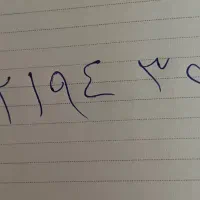 ٢١٩٤ ٣٥